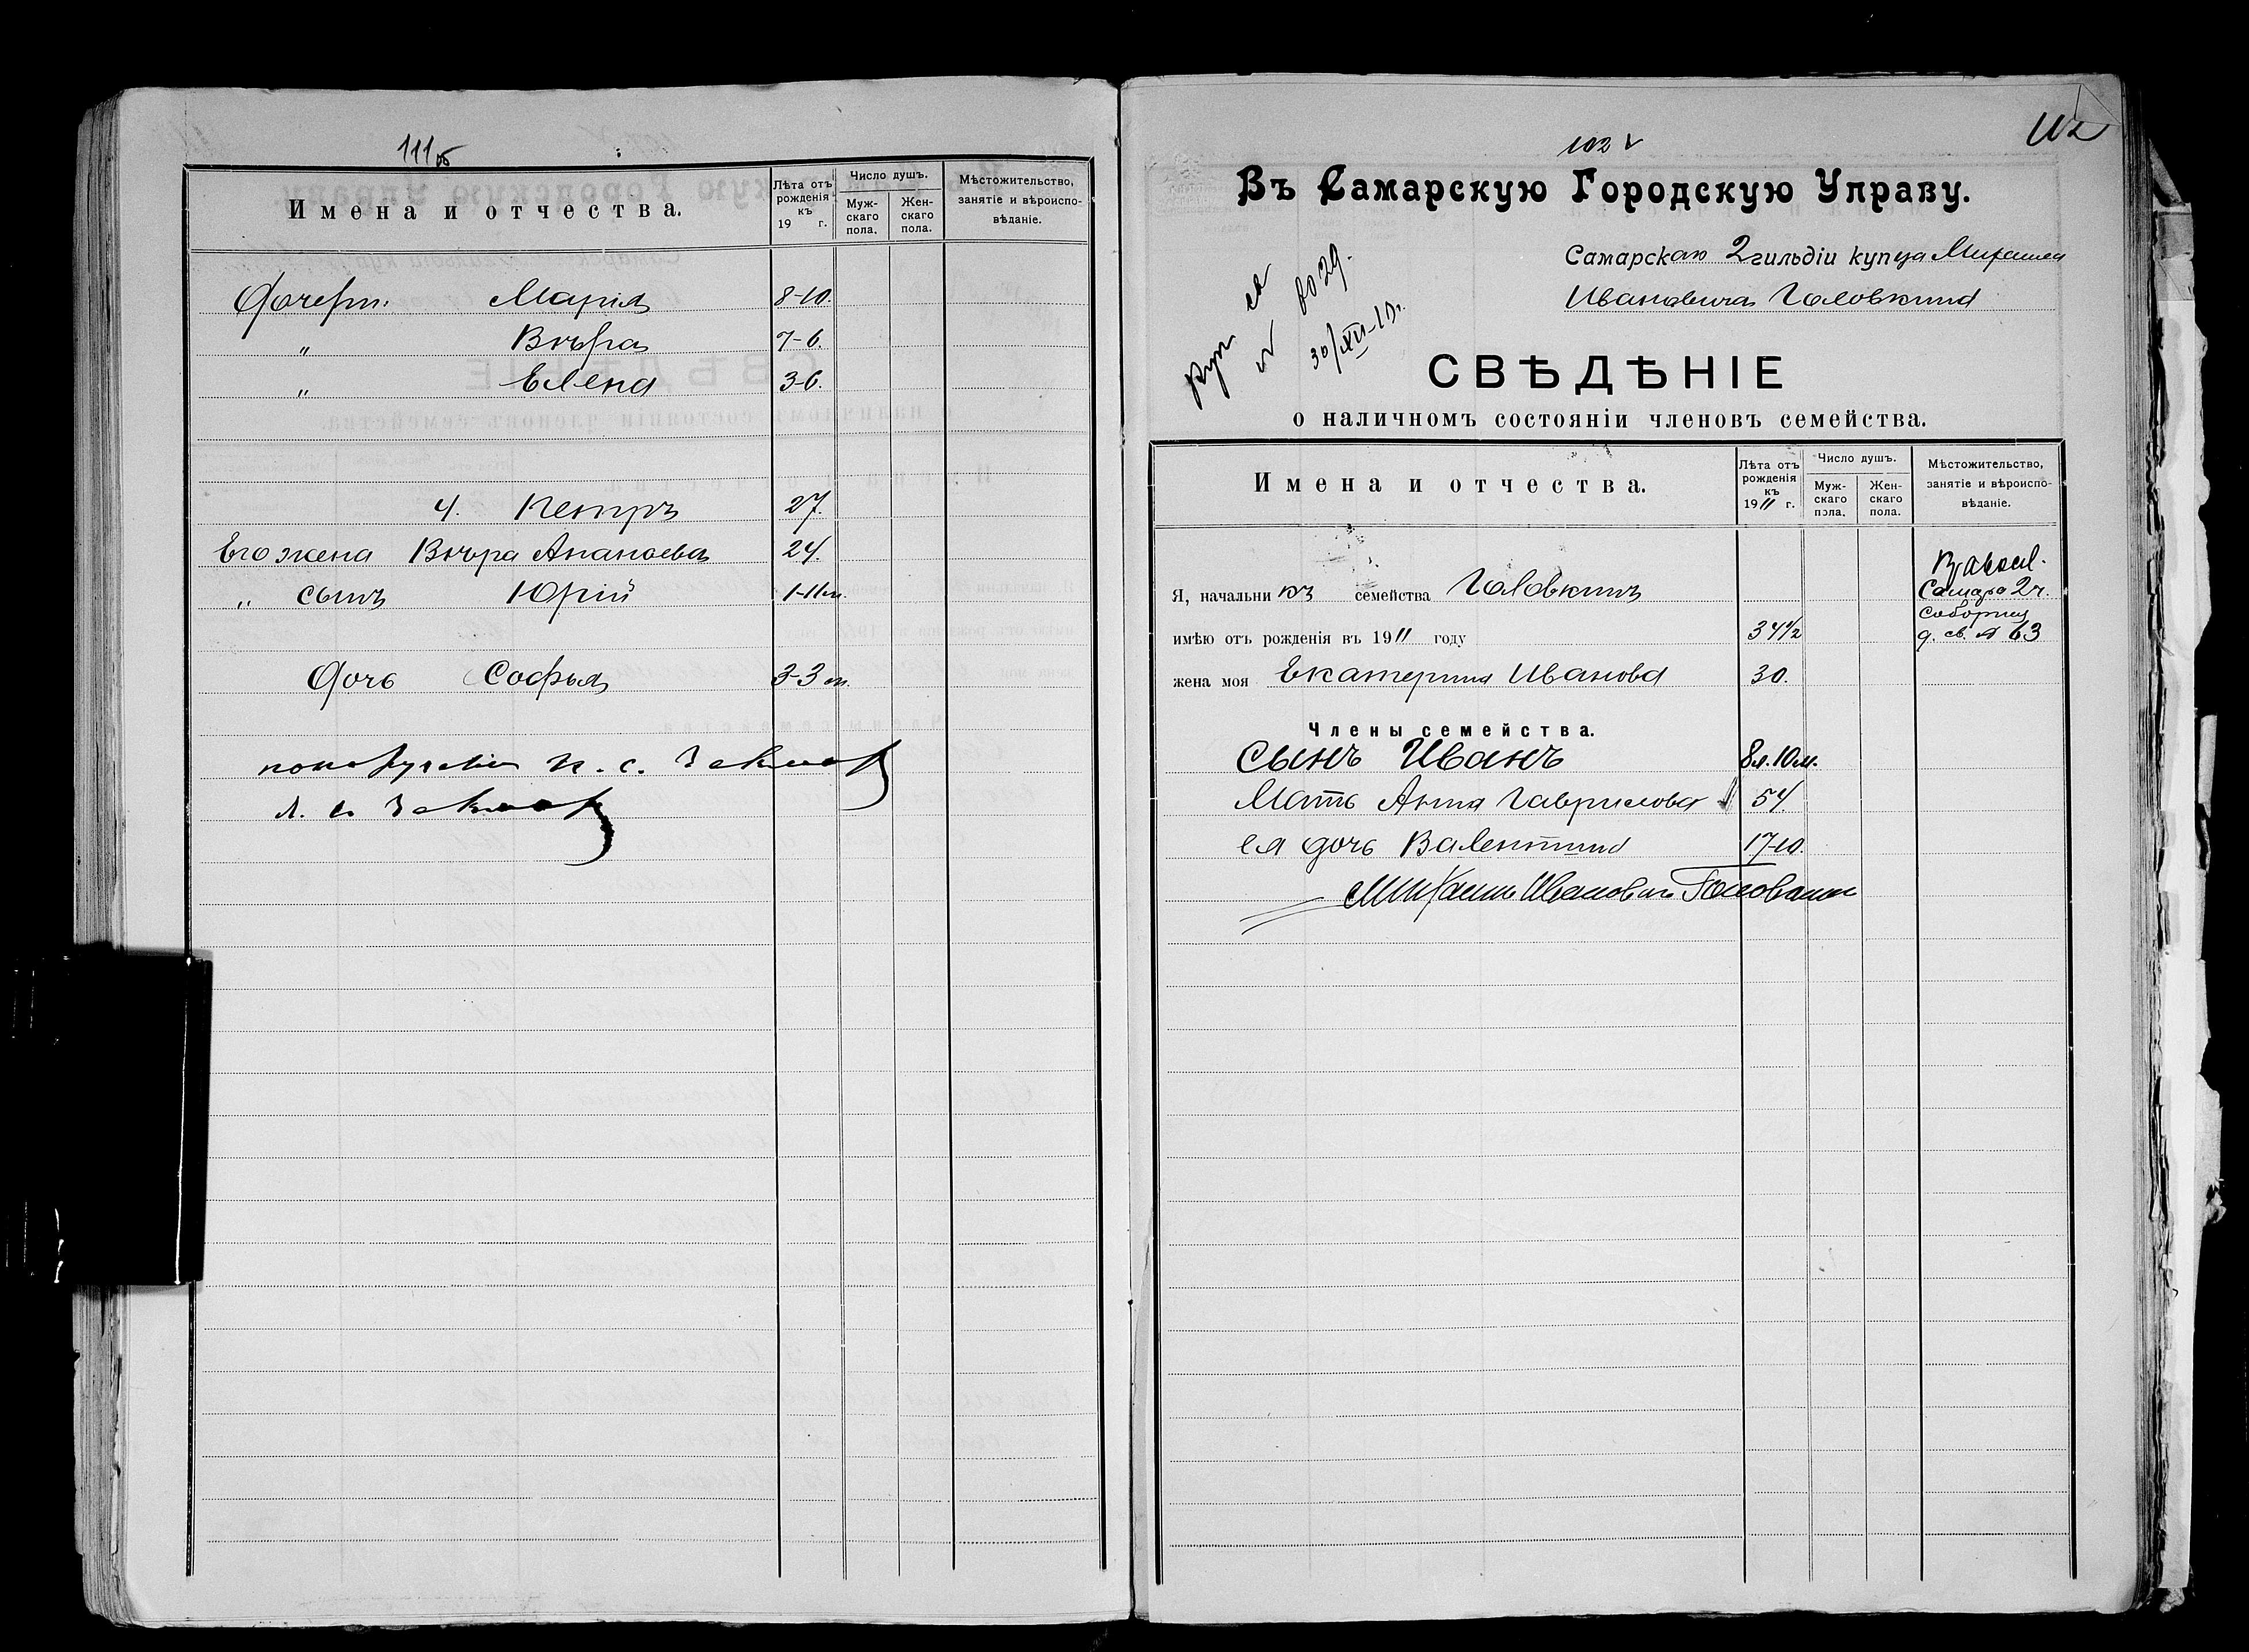 111 об
Имена и отчества.
Лѣта отъ рожденія къ 19 г.
Число душъ.
Муж-скаго пола.
Жен-скаго пола.
Мѣстожительство, занятіе и вѣроиспо-вѣданіе.
Дочери: Марія 8-10.
„ Вѣра 7-6.
„ Елена 3-6.
4. Петръ 27.
Его жена Вѣра Ананьева 24.
„ сынъ Юрій 1-11м.
Дочь Софья 3-3 м.
112
102
Въ Самарскую Городскую Управу.
Самарскаго 2 гильдіи купца Михаила
Ивановича Головкина
30/XII-10 г.
СВѢДѢНІЕ
о наличномъ состояніи членовъ семейства.
Имена и отчества.
Лѣта отъ рожденія къ 1911 г.
Число душъ.
Муж-скаго пола.
Жен-скаго пола.
Мѣстожительство, занятіе и вѣроиспо-вѣданіе.
Я, начальникъ семейства Головкинъ
Самара 2 ч.
Соборная
имѣю отъ рожденія въ 1911 году 34½
д. св. № 63
жена моя Екатерина Иванова 30.
Члены семейства.
Сынъ Иванъ 8 л. 10 м.
Мать Анна Гаврилова 54.
ея дочь Валентина 17-10.
Михаилъ Ивановичъ Головкинъ